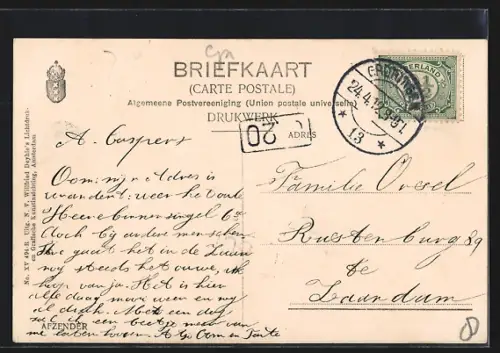 BRIEFKAART
(CARTE POSTALE)
Algemeene Postvereeniging (Union postale universelle)
DRUKWERK
ADRES
20
GRONINGEN
24.4.12
13
NEDERLAND
No. XY 49
Uitg. N. V. Wilhfried Deyhle's Lichtdruk-
en Grafische Kunstinrichting, Amsterdam
A. Caspers
Oom, mijn Adres is
veranderd: weer het oude
Heerebinnensingel 6a
doch bij andere menschen.
Hoe gaat het in de Zaan
nog steeds het ouwe, ik
hoop van ja. Het is hier
alle dagen mooi weer en nog
al druk. Met een dag
zal ik een beetje meer van
me laten hooren. A Go Oom en Tante
AFZENDER
Familie Oresel
Rustenburg 89
te
Zaandam